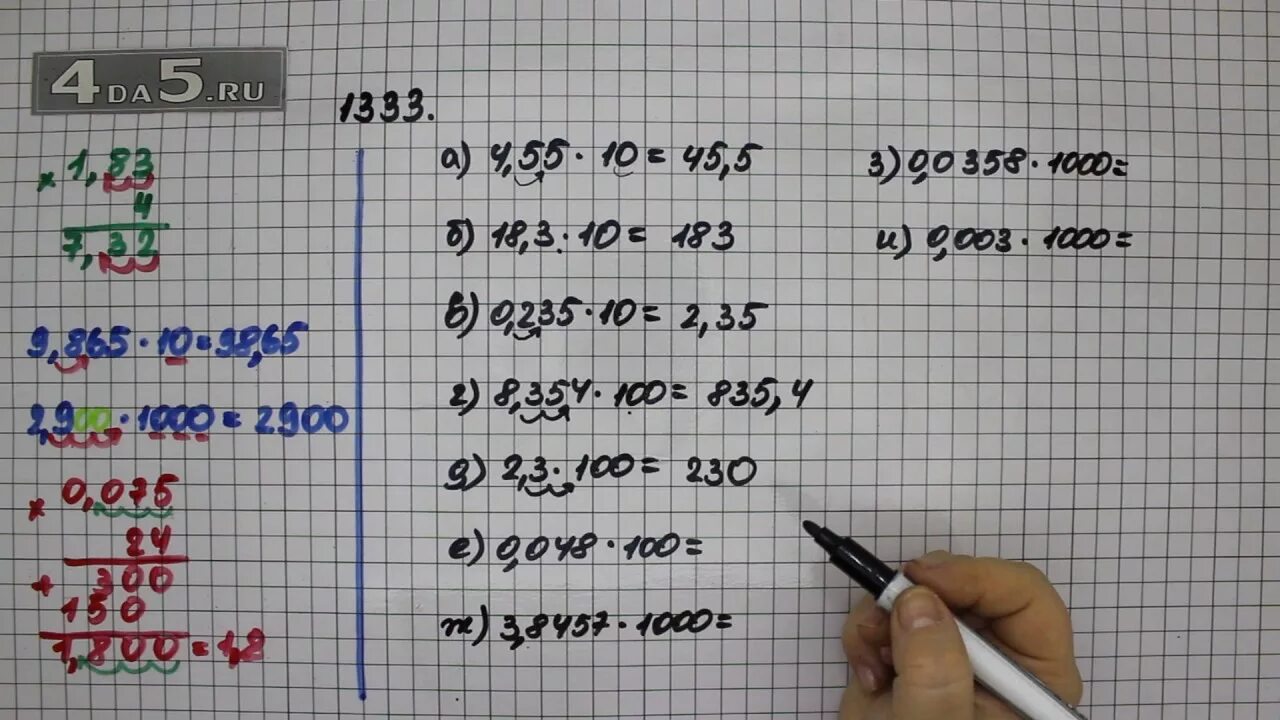 4DA5.RU
1333.
× 1,83
4
7,32
9,865 · 10 = 98,65
2,900 · 1000 = 2900
× 0,075
24
+ 300
150
1,800 = 1,8
а) 4,55 · 10 = 45,5
б) 18,3 · 10 = 183
в) 0,235 · 10 = 2,35
г) 8,354 · 100 = 835,4
д) 2,3 · 100 = 230
е) 0,048 · 100 =
ж) 3,8457 · 1000 =
з) 0,0358 · 1000 =
и) 0,003 · 1000 =